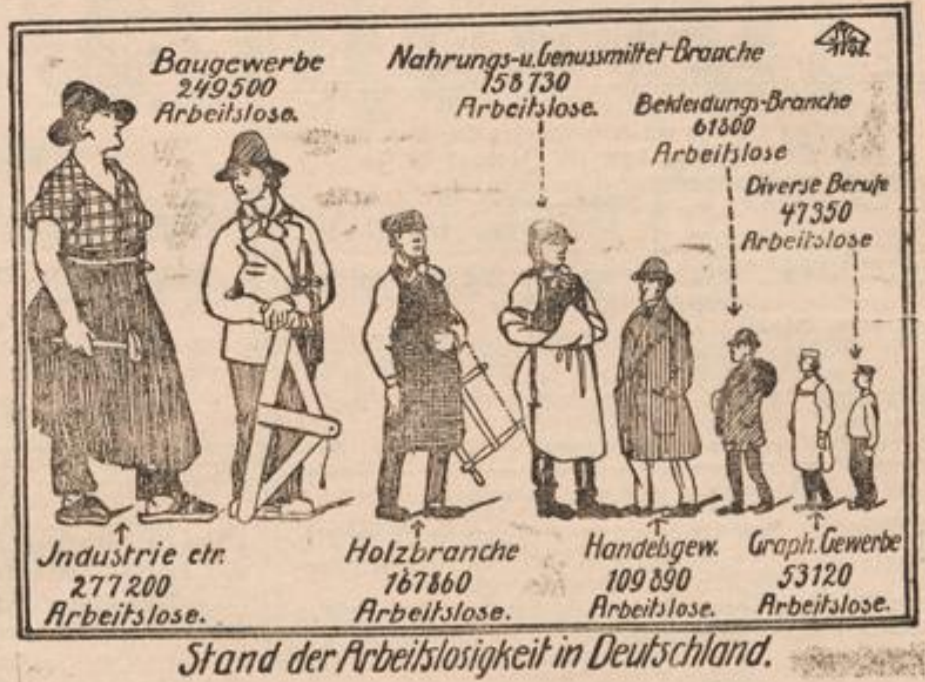 Baugewerbe
249500
Arbeitslose.
Nahrungs-u. Genussmittel-Branche
158730
Arbeitslose.
Bekleidungs-Branche
61800
Arbeitslose
Diverse Berufe
47350
Arbeitslose
Industrie etr.
277200
Arbeitslose.
Holzbranche
167860
Arbeitslose.
Handelsgew.
109890
Arbeitslose.
Graph. Gewerbe
53120
Arbeitslose.
Stand der Arbeitslosigkeit in Deutschland.